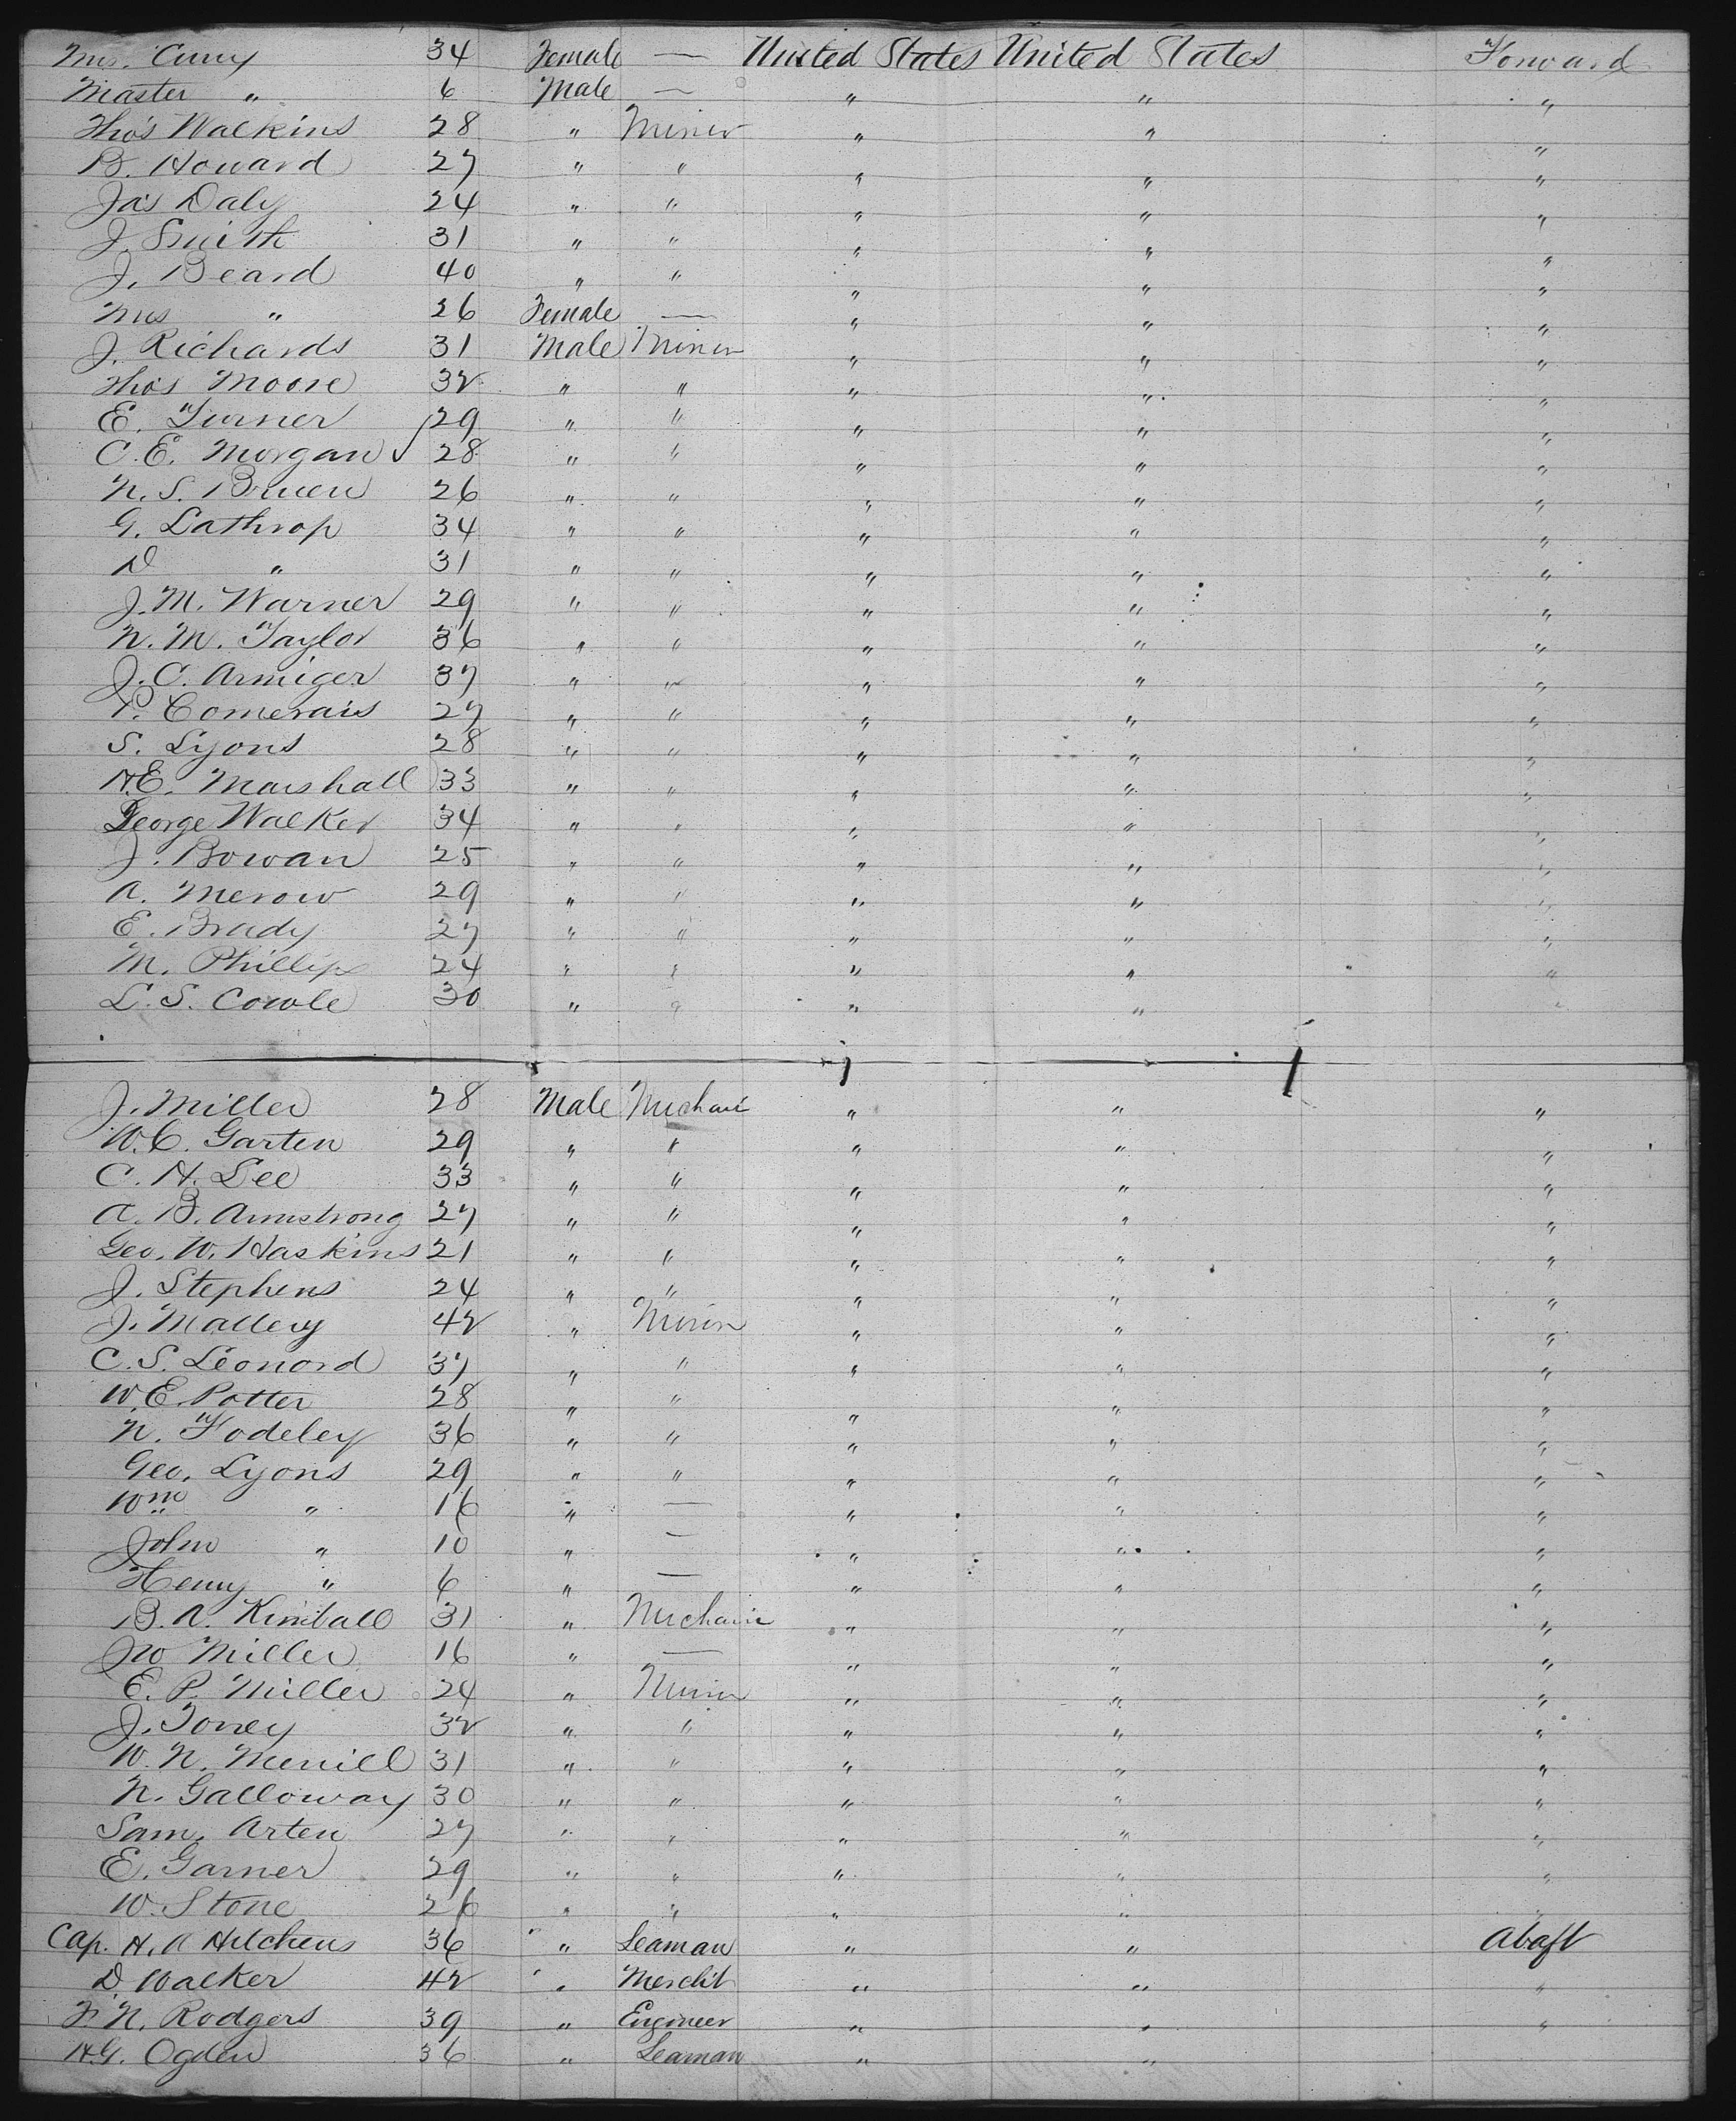 Mrs. Curry 34 Female — United States United States Forward
Master " 6 Male — " " "
Tho's Walkins 28 " Miner " " "
B. Howard 27 " " " " "
Ja's Daly 24 " " " " "
J. Smith 31 " " " " "
J. Beard 40 " " " " "
Mrs " 26 Female — " " "
J. Richards 31 Male Miner " " "
Tho's Moore 32 " " " " "
E. Turner 29 " " " " "
C. E. Morgan 28 " " " " "
N. S. Bruen 26 " " " " "
G. Lathrop 34 " " " " "
D " 31 " " " " "
J. M. Warner 29 " " " " "
N. M. Taylor 36 " " " " "
J. C. Armiger 37 " " " " "
P. Comerais 27 " " " " "
S. Lyons 28 " " " " "
H. E. Marshall 33 " " " " "
George Walker 34 " " " " "
J. Bowan 25 " " " " "
A. Merow 29 " " " " "
E. Brady 27 " " " " "
M. Phillips 24 " " " " "
L. S. Cowle 30 " " " " "
J. Miller 28 Male Mechani " " "
W. C. Garten 29 " " " " "
C. H. Lee 33 " " " " "
A. B. Armstrong 27 " " " " "
Geo. W. Haskins 21 " " " " "
J. Stephens 24 " " " " "
J. Mallery 42 " Miner " " "
C. S. Leonord 37 " " " " "
W. E. Potter 28 " " " " "
N. Fodeley 36 " " " " "
Geo. Lyons 29 " " " " "
Wm " 16 " — " " "
John " 10 " — " " "
Henry " 6 " — " " "
B. A. Kimball 31 " Mechanic " " "
Jno Miller 16 " — " " "
E. P. Miller 24 " Miner " " "
J. Toney 32 " " " " "
W. N. Merrill 31 " " " " "
N. Galloway 30 " " " " "
Sam. Arten 27 " " " " "
E. Garner 29 " " " " "
W. Stone 26 " " " " "
Cap. H. A Hitchens 36 " Seaman " " Abaft
D. Walker 42 " Mercht " " "
F. N. Rodgers 39 " Engineer " " "
H. G. Ogden 36 " Seaman " "